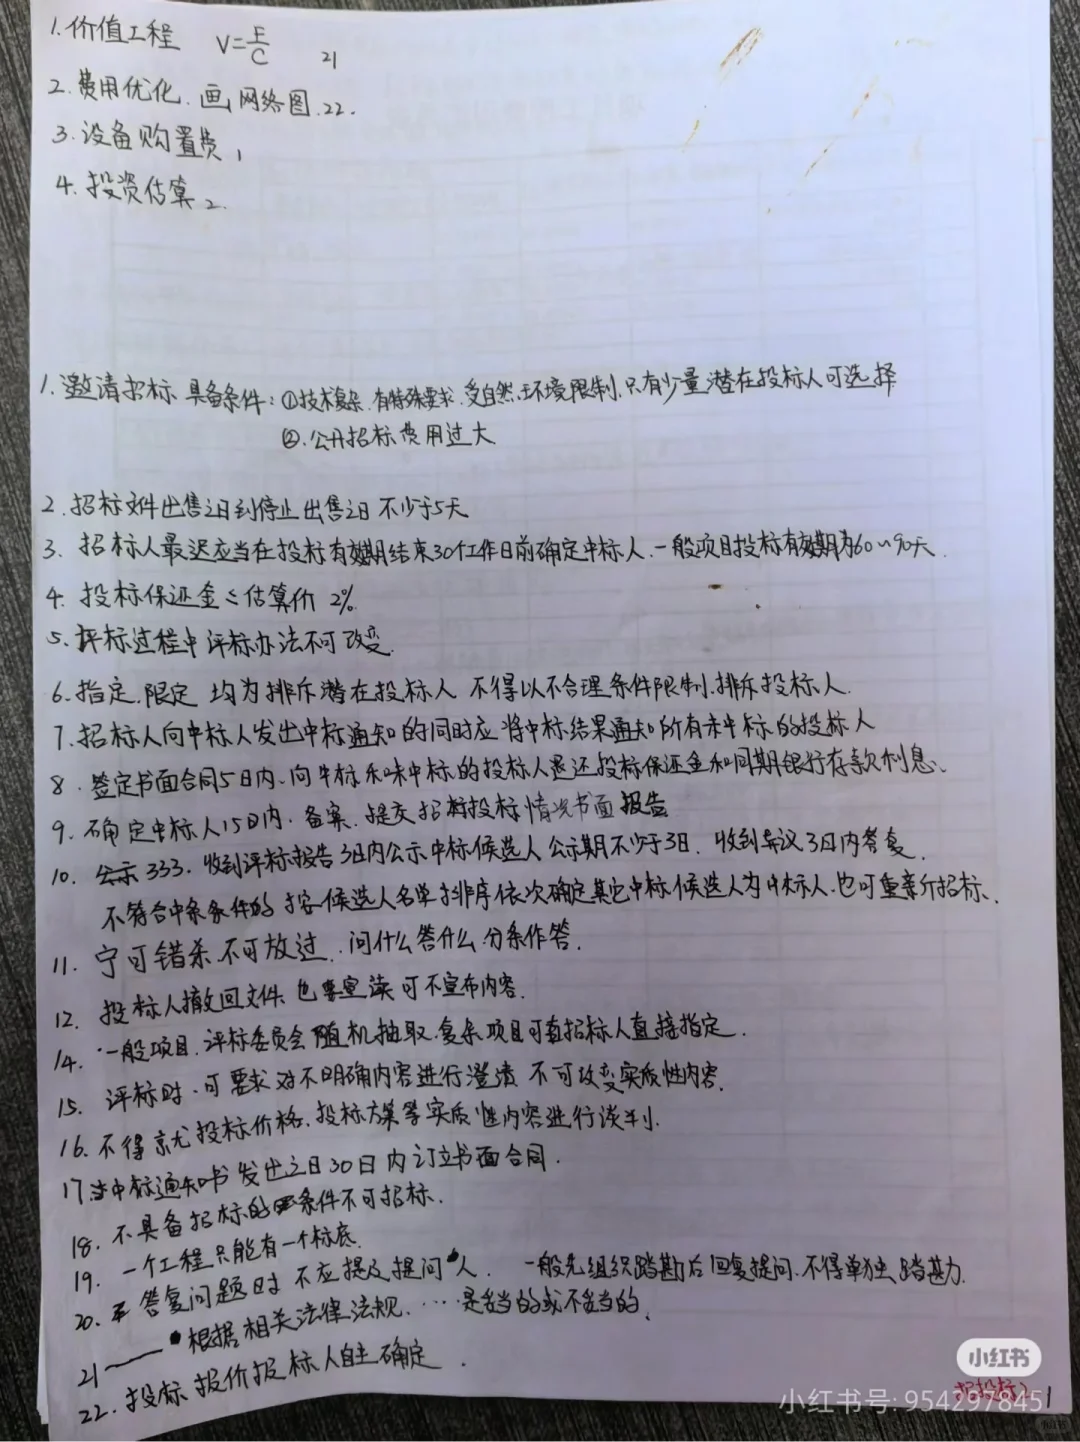 1.价值工程 V=F/C 21
2.费用优化.画网络图.22.
3.设备购置费1
4.投资估算2.
1.邀请招标 具备条件:①技术复杂.有特殊要求.受自然环境限制.只有少量潜在投标人可选择
②.公开招标费用过大
2.招标文件出售之日到停止出售之日 不少于5天
3.招标人最迟应当在投标有效期结束30个工作日前确定中标人.一般项目投标有效期为60~90天.
4.投标保证金≤估算价2%.
5.评标过程中评标办法不可改变.
6.指定.限定 均为排斥潜在投标人 不得以不合理条件限制.排斥投标人.
7.招标人向中标人发出中标通知的同时应将中标结果通知所有未中标的投标人
8.签定书面合同5日内.向中标和未中标的投标人退还投标保证金和同期银行存款利息.
9.确定中标人15日内.备案.提交招标投标情况书面报告
10.公示333.收到评标报告3日内公示中标候选人 公示期不少于3日.收到异议3日内答复.
不符合中标条件的 按候选人名单排序依次确定其它中标候选人为中标人.也可重新招标.
11.宁可错杀.不可放过.问什么答什么.分条作答.
12.投标人撤回文件 也要宣读 可不宣布内容.
14.一般项目.评标委员会随机抽取.复杂项目可直招标人直接指定.
15.评标时.可要求对不明确内容进行澄清 不可改变实质性内容.
16.不得就投标价格.投标方案等实质性内容进行谈判.
17.中标通知书发出之日30日内订立书面合同.
18.不具备招标的条件不可招标.
19.一个工程只能有一个标底.
20.答复问题时 不应提及提问人. 一般先组织踏勘后回复提问.不得单独踏勘.
21 —— 根据相关法律法规.…是妥当的或不妥当的.
22.投标报价投标人自主确定.
招投标 1
小红书
小红书号:954297845